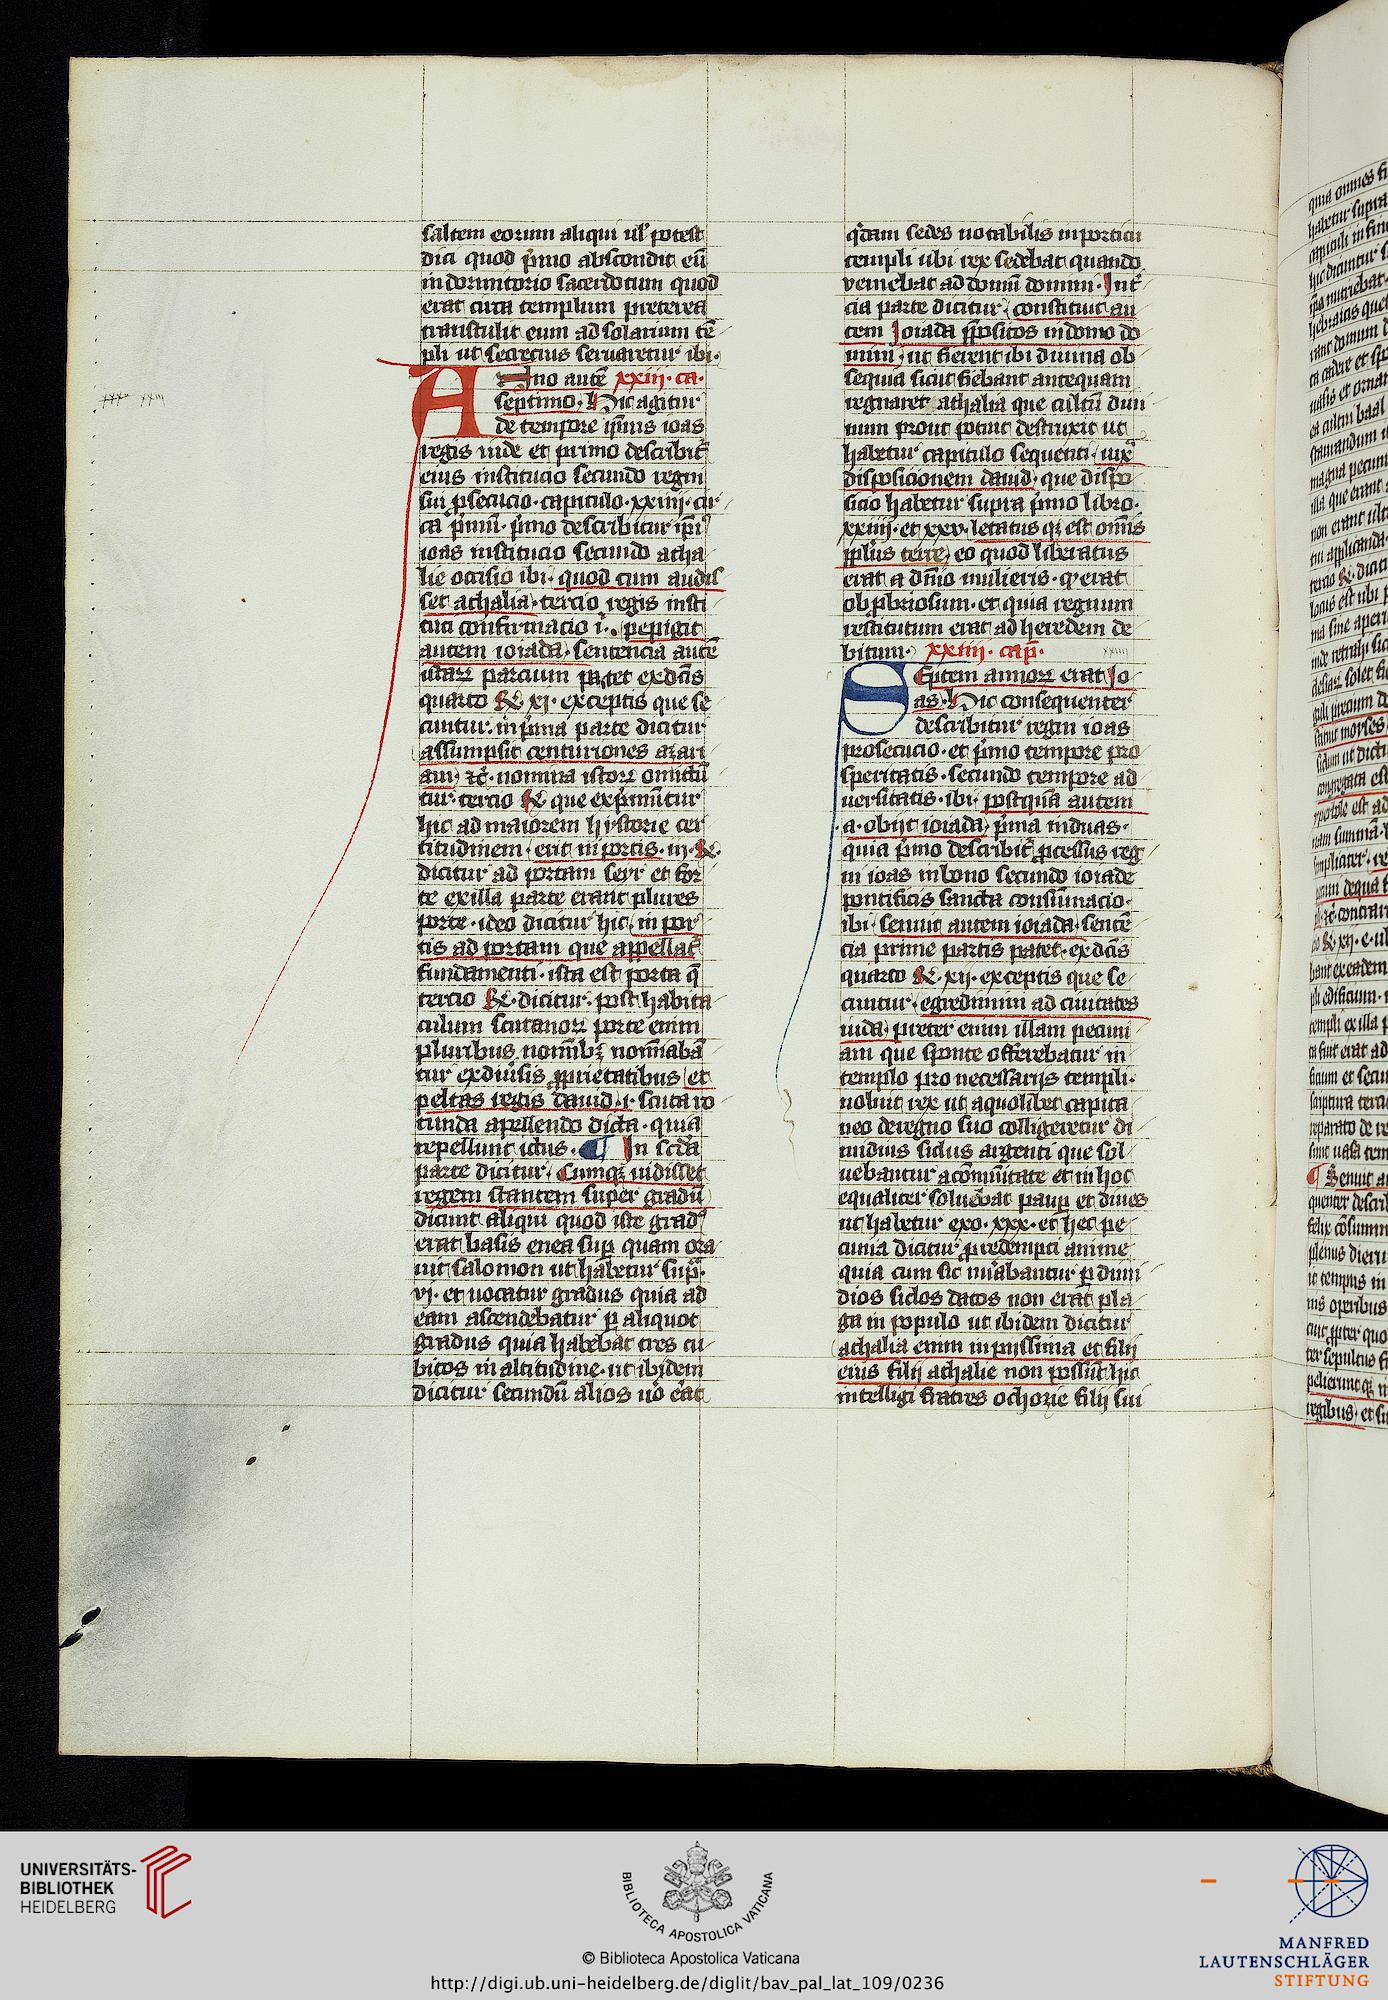 saltem eorum aliqui ul' potest
dici quod p̄mo abscondit eū
in dormitorio sacerdotum quod
erat circa templum preterea
transtulit eum ad solarium tē
pli ut secretius servaretur ibi·
Anno autē xxiii· ca·
septimo· Hic agitur
de tempore ipsius ioas
regis iude et primo describit̄
eius institucio secundo regni
sui ꝓsecucio· capitulo· xxiiii· cir
ca p̄mū· p̄mo describitur ip̄i
ioas institucio secundo atha
lie occisio ibi· quod cum audis
set athalia· tercio regis insti
tuti confirmacio i· pepigit
autem ioiada· sentencia autē
istaꝝ parcium patet ex dc̄is
quarto R· xi· exceptis que se
cuntur· in p̄ma parte dicitur
assumpsit centuriones azari
am) ⁊c̄· nomina istoꝝ omictū
tur tercio R· que exp̄muntur
hic ad maiorem hystorie cer
titudinem· erit in portis· iii· R·
dicitur ad portam seyr et for
te ex illa parte erant plures
porte· ideo dicitur hic· in por
tis ad portam que appellat̄
fundamenti· ista est porta q̄
tercio R· dicitur· post habita
culum scutarioꝝ porte enim
pluribus nomībꝫ nomīabā
tur ex diuersis ꝓprietatibus (et
peltas regis dauid· i· scuta ro
tunda apellendo dicta· quia
repellunt ictus· ¶ In sc̄da
parte dicitur· Cumqꝫ uidisset
regem stantem super gradū
dicunt aliqui quod iste grad'
erat basis enea sup quam ora
uit salomon ut habetur sup̄·
vi· et uocatur gradus quia ad
eam ascendebatur ꝑ aliquot
gradus quia habebat tres cu
bitos in altitudine· ut ibidem
dicitur secundū alios u'o erat
q̄dam sedes notabilis in porticu
templi ubi rex sedebat quando
veniebat ad domū domini· In t̄
cia parte dicitur· constituit au
tem Ioiada p̄positos in domo do
mini, ut fierent ibi diuina ob
sequia sicut fiebant antequam
regnaret athalia que cultū diui
num prout potuit destruxit ut
habetur capitulo sequenti· iuxᵃ
disposicionem dauid, que dispo
sicio habetur supra p̄mo libro·
xxiiii· et xxv· letatus qꝫ est omīs
pp̄lus terre, eo quod liberatus
erat a dn̄io mulieris· q' erat
obꝓbriosum· et quia regnum
restitutum erat ad heredem de
bitum· xxiiii· cap̄·
SEptem annoꝝ erat Io
as· Hic consequenter
describitur regni ioas
prosecucio· et p̄mo tempore pro
speritatis· secundo tempore ad
uersitatis· ibi· postquā autem
a· obijt ioiada, p̄ma in duas·
quia p̄mo describit̄ ꝓcessus reg
ni ioas in bono secundo ioiade
pontificis sancta consūmacio·
ibi· senuit autem ioiada· sentē
cia prime partis patet· ex dc̄is
quarto R· xii· exceptis que se
cuntur· egredimini ad ciuitates
iuda, preter enim illam pecuni
am que sponte offerebatur in
templo pro necessarijs templi·
uoluit rex ut a quolibet capita
neo de regno suo colligeretur di
midius siclus argenti que sol
uebantur a cōmūitate et in hoc
equaliter soluebat paup et diues
ut habetur exo· xxx· et hec pe
cunia dicitur ꝓ redempti anime
quia cum sic nūabantur ꝑ dimi
dios siclos datos non erat pla
ga in populo ut ibidem dicitur
athalia enim impiissima et filij
eius filij athalie non possūt hic
intelligi fratres ochozie filij sui
xxiii
xxiiii
UNIVERSITÄTS-
BIBLIOTHEK
HEIDELBERG
BIBLIOTECA APOSTOLICA VATICANA
© Biblioteca Apostolica Vaticana
http://digi.ub.uni-heidelberg.de/diglit/bav_pal_lat_109/0236
MANFRED
LAUTENSCHLÄGER
STIFTUNG